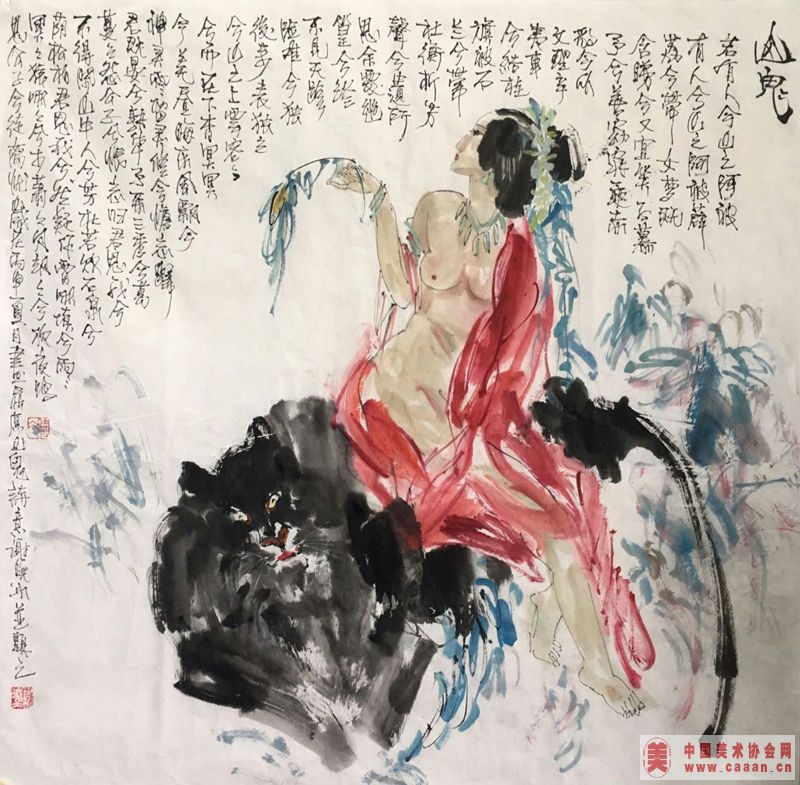 山鬼
若有人兮山之阿被
有人兮山之阿被薜
荔兮带女萝既
含睇兮又宜笑子慕
予兮善窈窕乘赤
豹兮从
文狸辛
夷车
兮结桂
旗被石
兰兮带
杜衡折芳
馨兮遗所
思余处幽
篁兮终
不见天路
险难兮独
后来表独立
兮山之上云容容
兮而在下杳冥冥
兮羌昼晦东风飘兮
神灵雨留灵修兮憺忘归
既晏兮孰华予采三秀兮
蔓蔓怨公子兮怅忘归君思我兮
不得閒山中人兮芳杜若饮石泉兮
荫松柏君思我兮然疑作雷填填兮雨
冥冥猿啾啾兮木萧萧风飒飒兮狖夜鸣
思公子兮徒离忧岁在丙申夏月书画屈原山鬼诗意谢晓冰并题之
美 中国美术协会网
www.caaan.cn